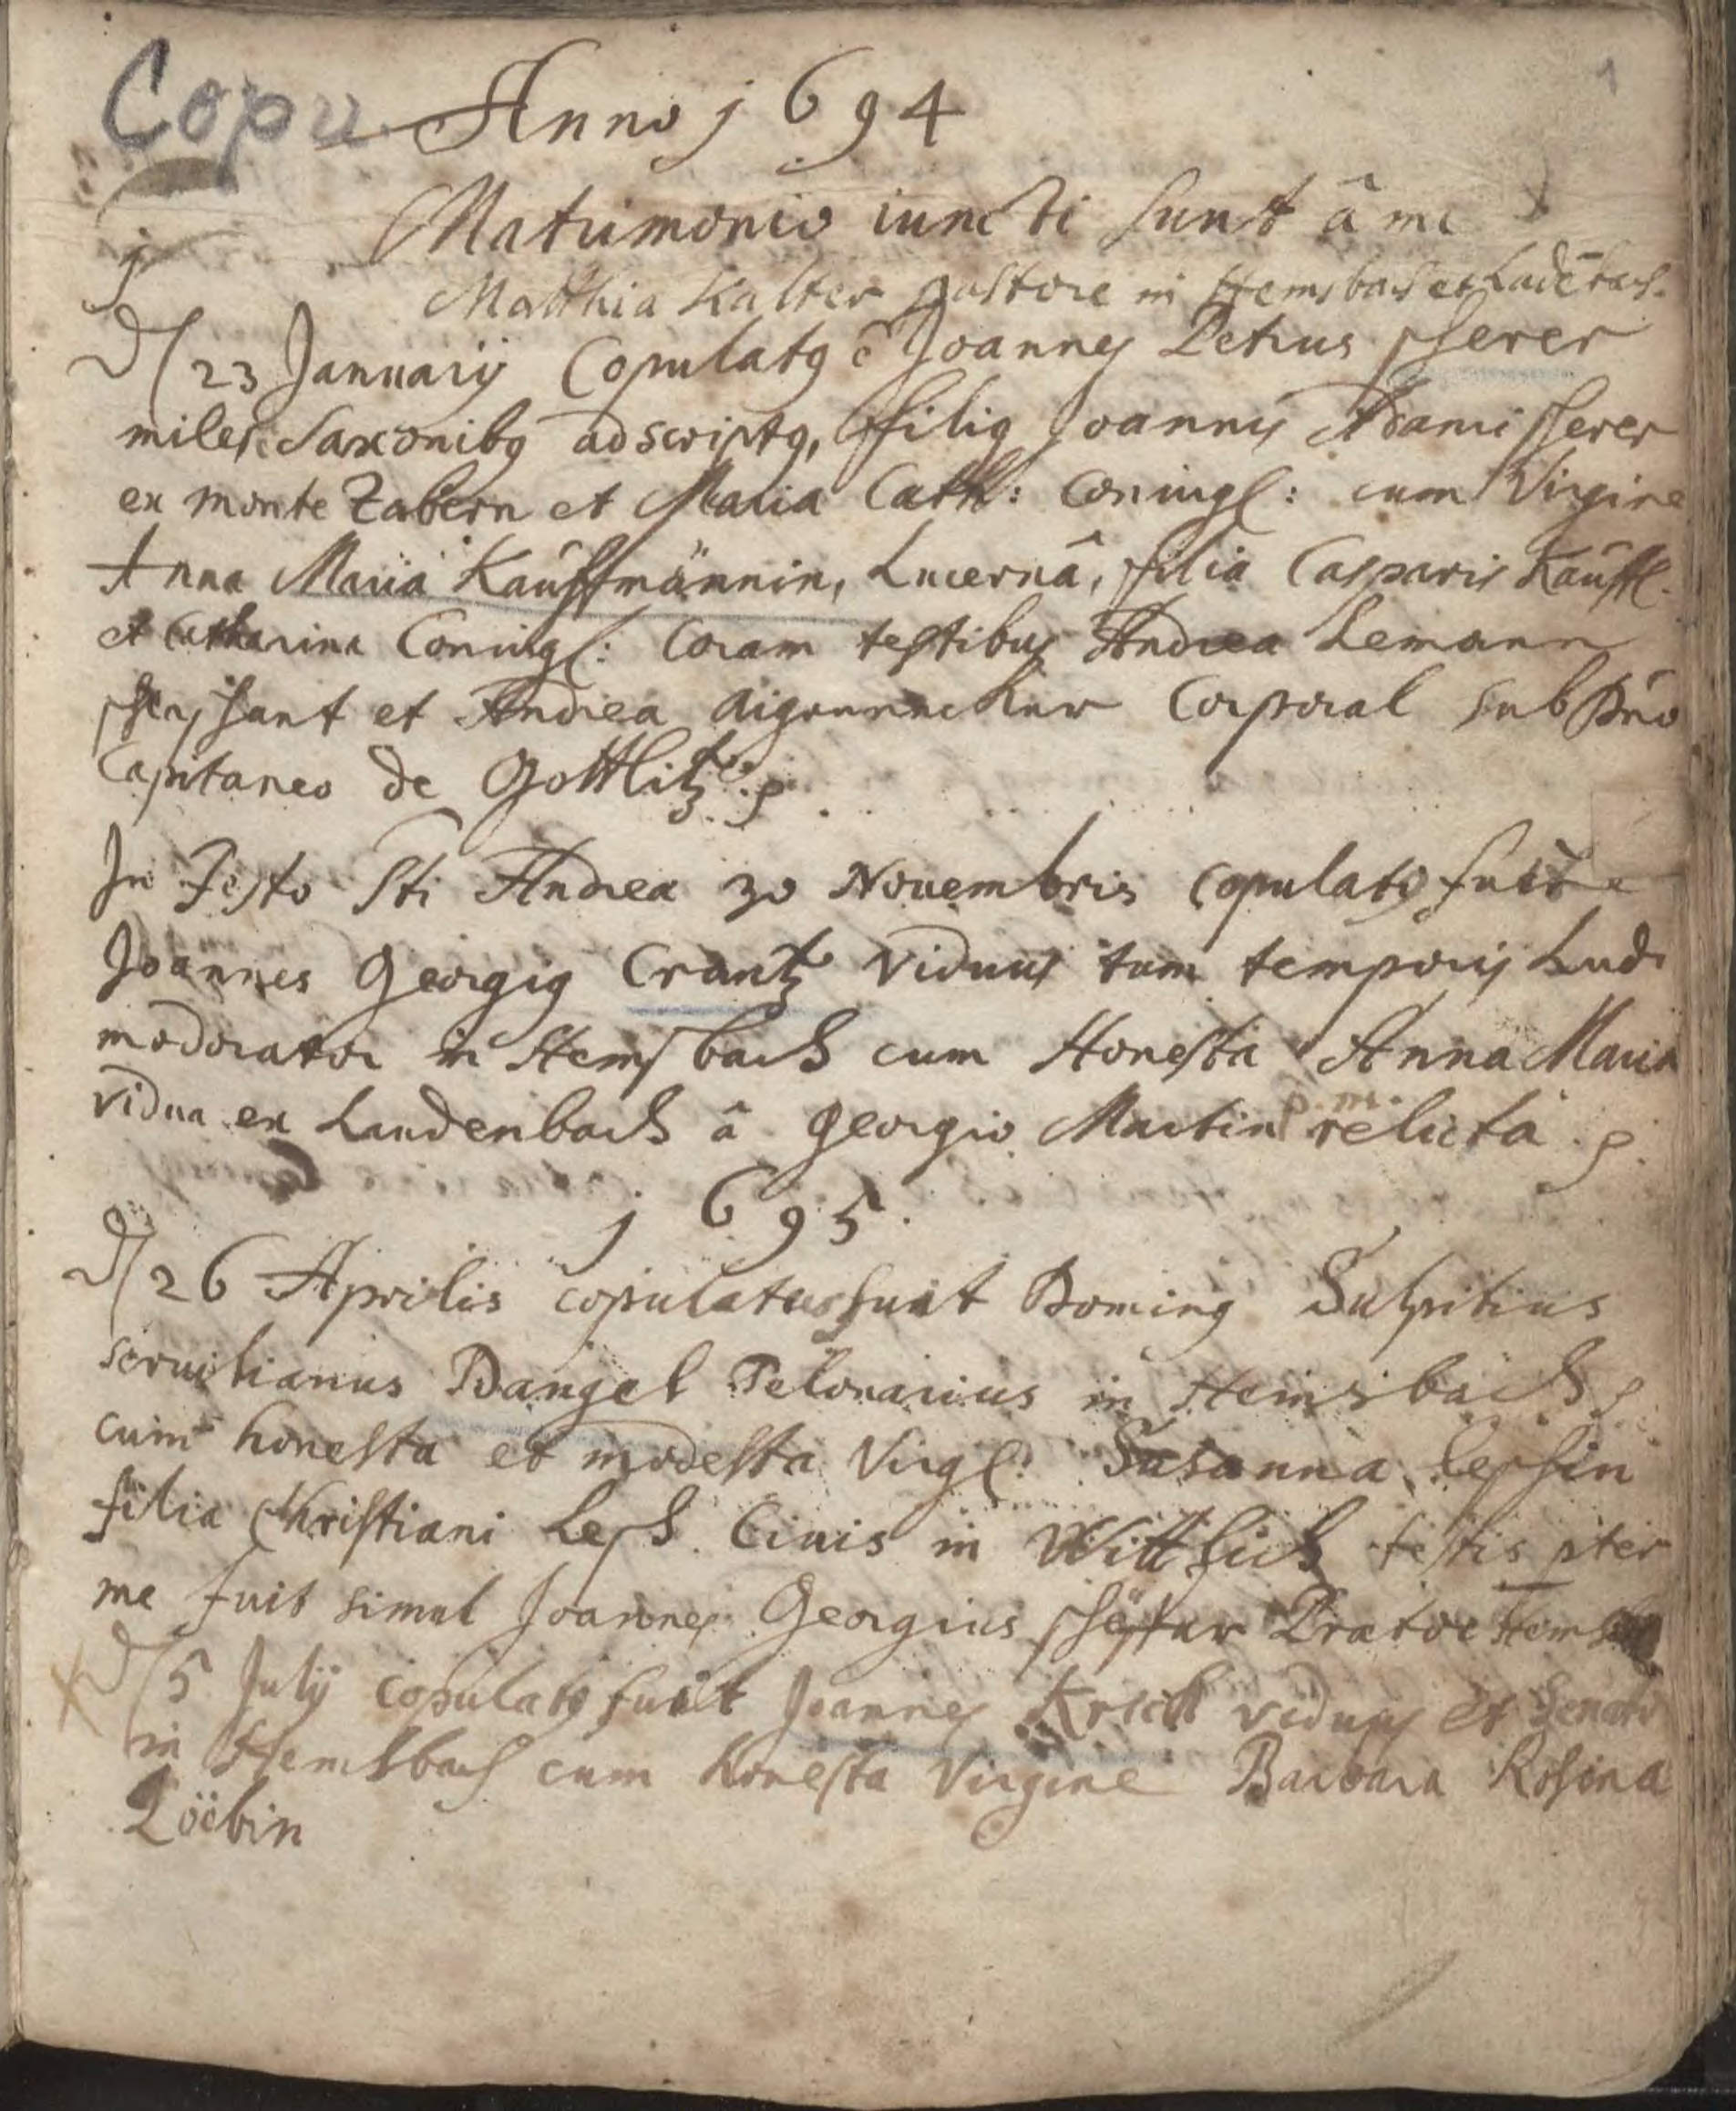 Copu. Anno j694
1
Matrimonio iuncti sunt â me
j
Matthia Kalter pastore in Hemsbach et Ladēbach.
D 23 Januarij Copulatq ē Joannes Petrus scherer
miles Saxonibq adscriptq, ffiliq Joannis Adami scherer
ex monte Zabern et Maria Cath: Coniugl: cum Virgine
Anna Maria Kauffmännin, Lucernâ, filia Casparis Kauffl.
et Catharina Coniugl: Coram testibus Andrea Lemann
et Andrea Corporal sub Dno
Capitaneo de Gottlitz. p.
In Festo Sti Andrea 30 Nouembris Copulatq fuit
Joannes Georgiq Crantz Viduus tum temporis Ludi
moderator in Hemsbach cum Honesta Anna Maria
vidua ex Laudenbach â Georgio Martin p.m. relicta. p.
j695.
D 26 Aprilis copulatus fuit Dominq Sulpitius
seruilianus Dangel Telonarius in Hemsbach p
cum honesta et modesta Virgl: Susanna Leschin
filia Christiani Lesch Ciuis in Wittlich testis pter
me fuit simul Joannes Georgius Praetor
D 5 Julij Copulatq fuit Joannes viduus et Senator
in Hemsbach cum honesta Virgine Barbara Rosina
Löëbin